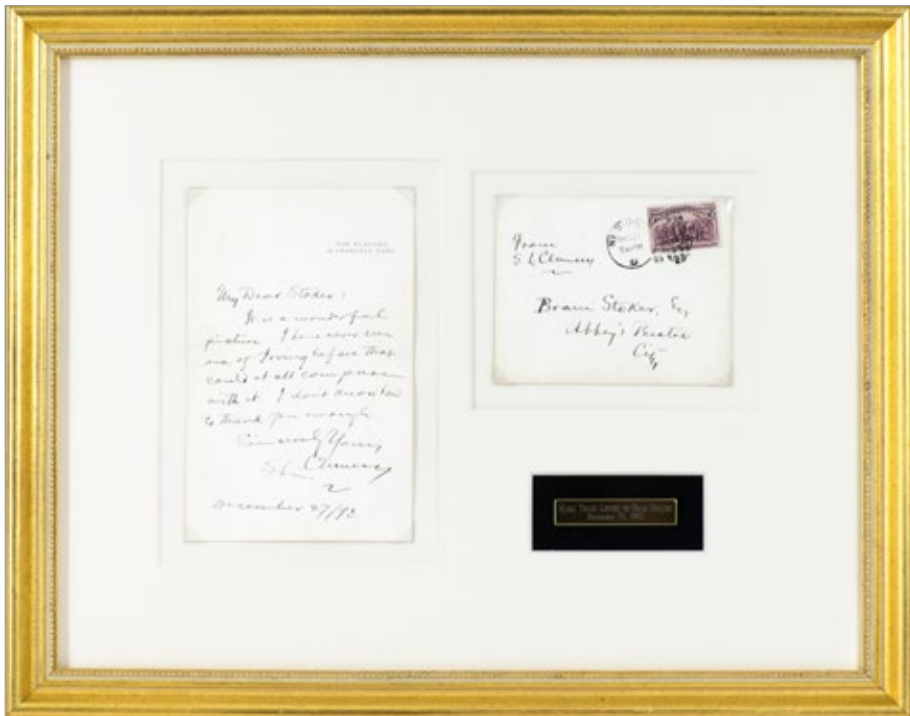 THE PLAYERS,
My Dear Stoker:
It is a wonderful
picture. I have never seen
one of Irving before that
could at all compare
with it. I don't know how
to thank you enough.
Sincerely Yours,
S L Clemens
December 27/93
From
S L Clemens
Bram Stoker, Esq
Abbey's Theatre
City
MARK TWAIN LETTER TO BRAM STOKER